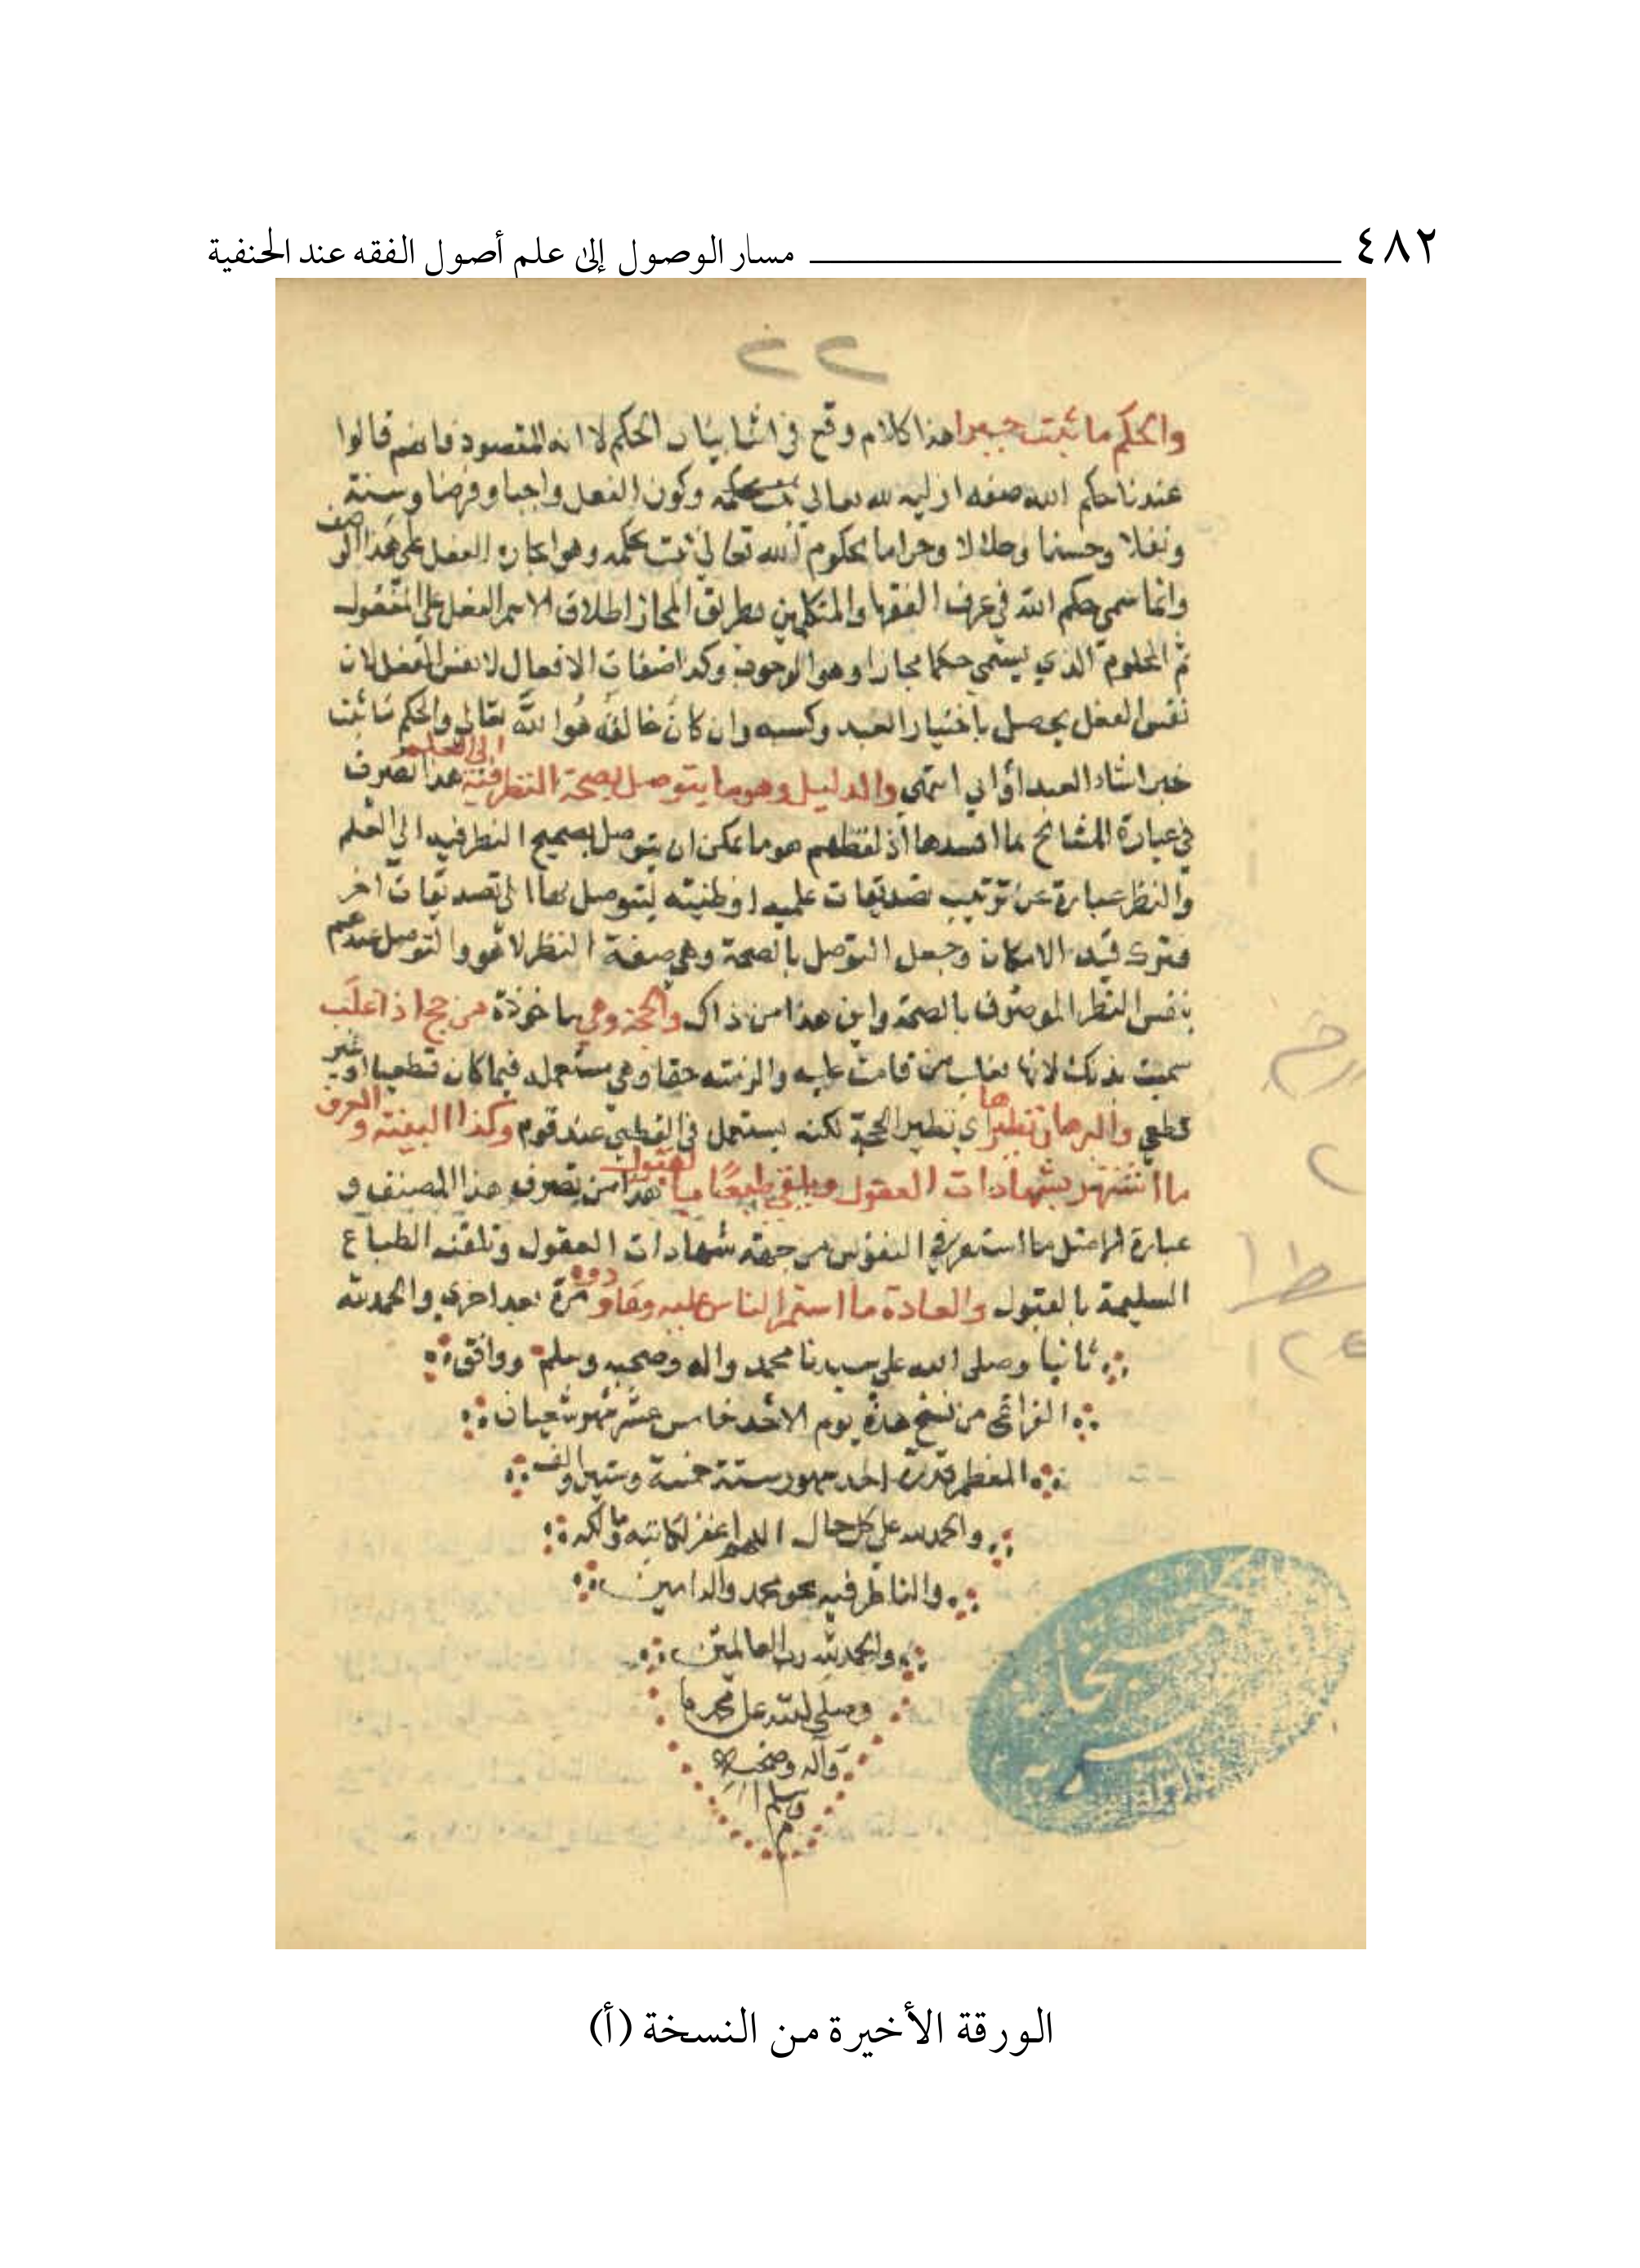 ٤٨٢ مسار الوصول إلى علم أصول الفقه عند الحنفية
٢٢
والحكم ما ثبت جبرا هذا كلام وقع في اثنا بيان الحكم لا انه المقصود فانهم قالوا
عندنا حكم الله صفه ازليه لله تعالى وكون الفعل واجبا وفرضا وسنة
ونفلا وحسنا وحلالا وحراما محكوم الله تعالى ثبت بحكمه وهو ايجاده الفعل على هذا الوصف
وانما سمي حكم الله في عرف الفقها والمتكلمين بطريق المجاز اطلاق الاسم الفعل على المفعول
ثم المحكوم الذي يسمى حكما مجازا وهو الوجوب وكذا صفات الافعال لا نفس الفعل لان
نفس الفعل يحصل باختيار العبد وكسبه وان كان خالقه هو الله تعالى والحكم ما ثبت
خبرا شاء العبد أو ابي انتهى والدليل وهو ما يتوصل بصحة النظر فيه الى العلم هذا تصرف
في عبارة المشائخ بما افسدها اذ لفظهم هو ما يمكن ان يتوصل بصحيح النظر فيه الى العلم
والنظر عبارة عن ترتيب تصديقات علميه او ظنيته ليتوصل بها الى تصديقات اخر
فترك قيد الامكان وجعل التوصل بالصحة وهي صفة النظر لا هو والتوصل عندهم
بنفس النظر الموصوف بالصحة واين هذا من ذاك والحجة وهي ماخوذة من حج اذا غلب
سميت بذلك لانها تغلب من قامت عليه والزمته حقا وهي مستعمله فيما كان قطعيا او غير
قطعي والبرهان نظيرها اي نظير الحجة لكنه يستعمل في القطعي عند قوم وكذا البينة والعرف
ما اشتهر بشهادات العقول ويلقى طبعا بالقبول هذا من تصرف هذا المصنف و
عبارة الاصل ما استقر في النفوس من جهة شهادات العقول وتلقته الطباع
السليمة بالقبول والعادة ما استمر الناس عليه وعاودوه مرة بعد اخرى والحمد لله
ثانيا وصلى الله على سيدنا محمد واله وصحبه وسلم ووافق
الفراغ من نسخ هذه يوم الاحد خامس عشر شهر شعبان
المعظم قدره احد شهور سنة خمسة وستين والف
والحمد لله على كل حال اللهم اغفر لكاتبه ومالكه
والناظر فيه بمحمد واله امين
والحمد لله رب العالمين
وصلى الله على محمد
وآله وصحبه
وسلم
م
الورقة الأخيرة من النسخة (أ)